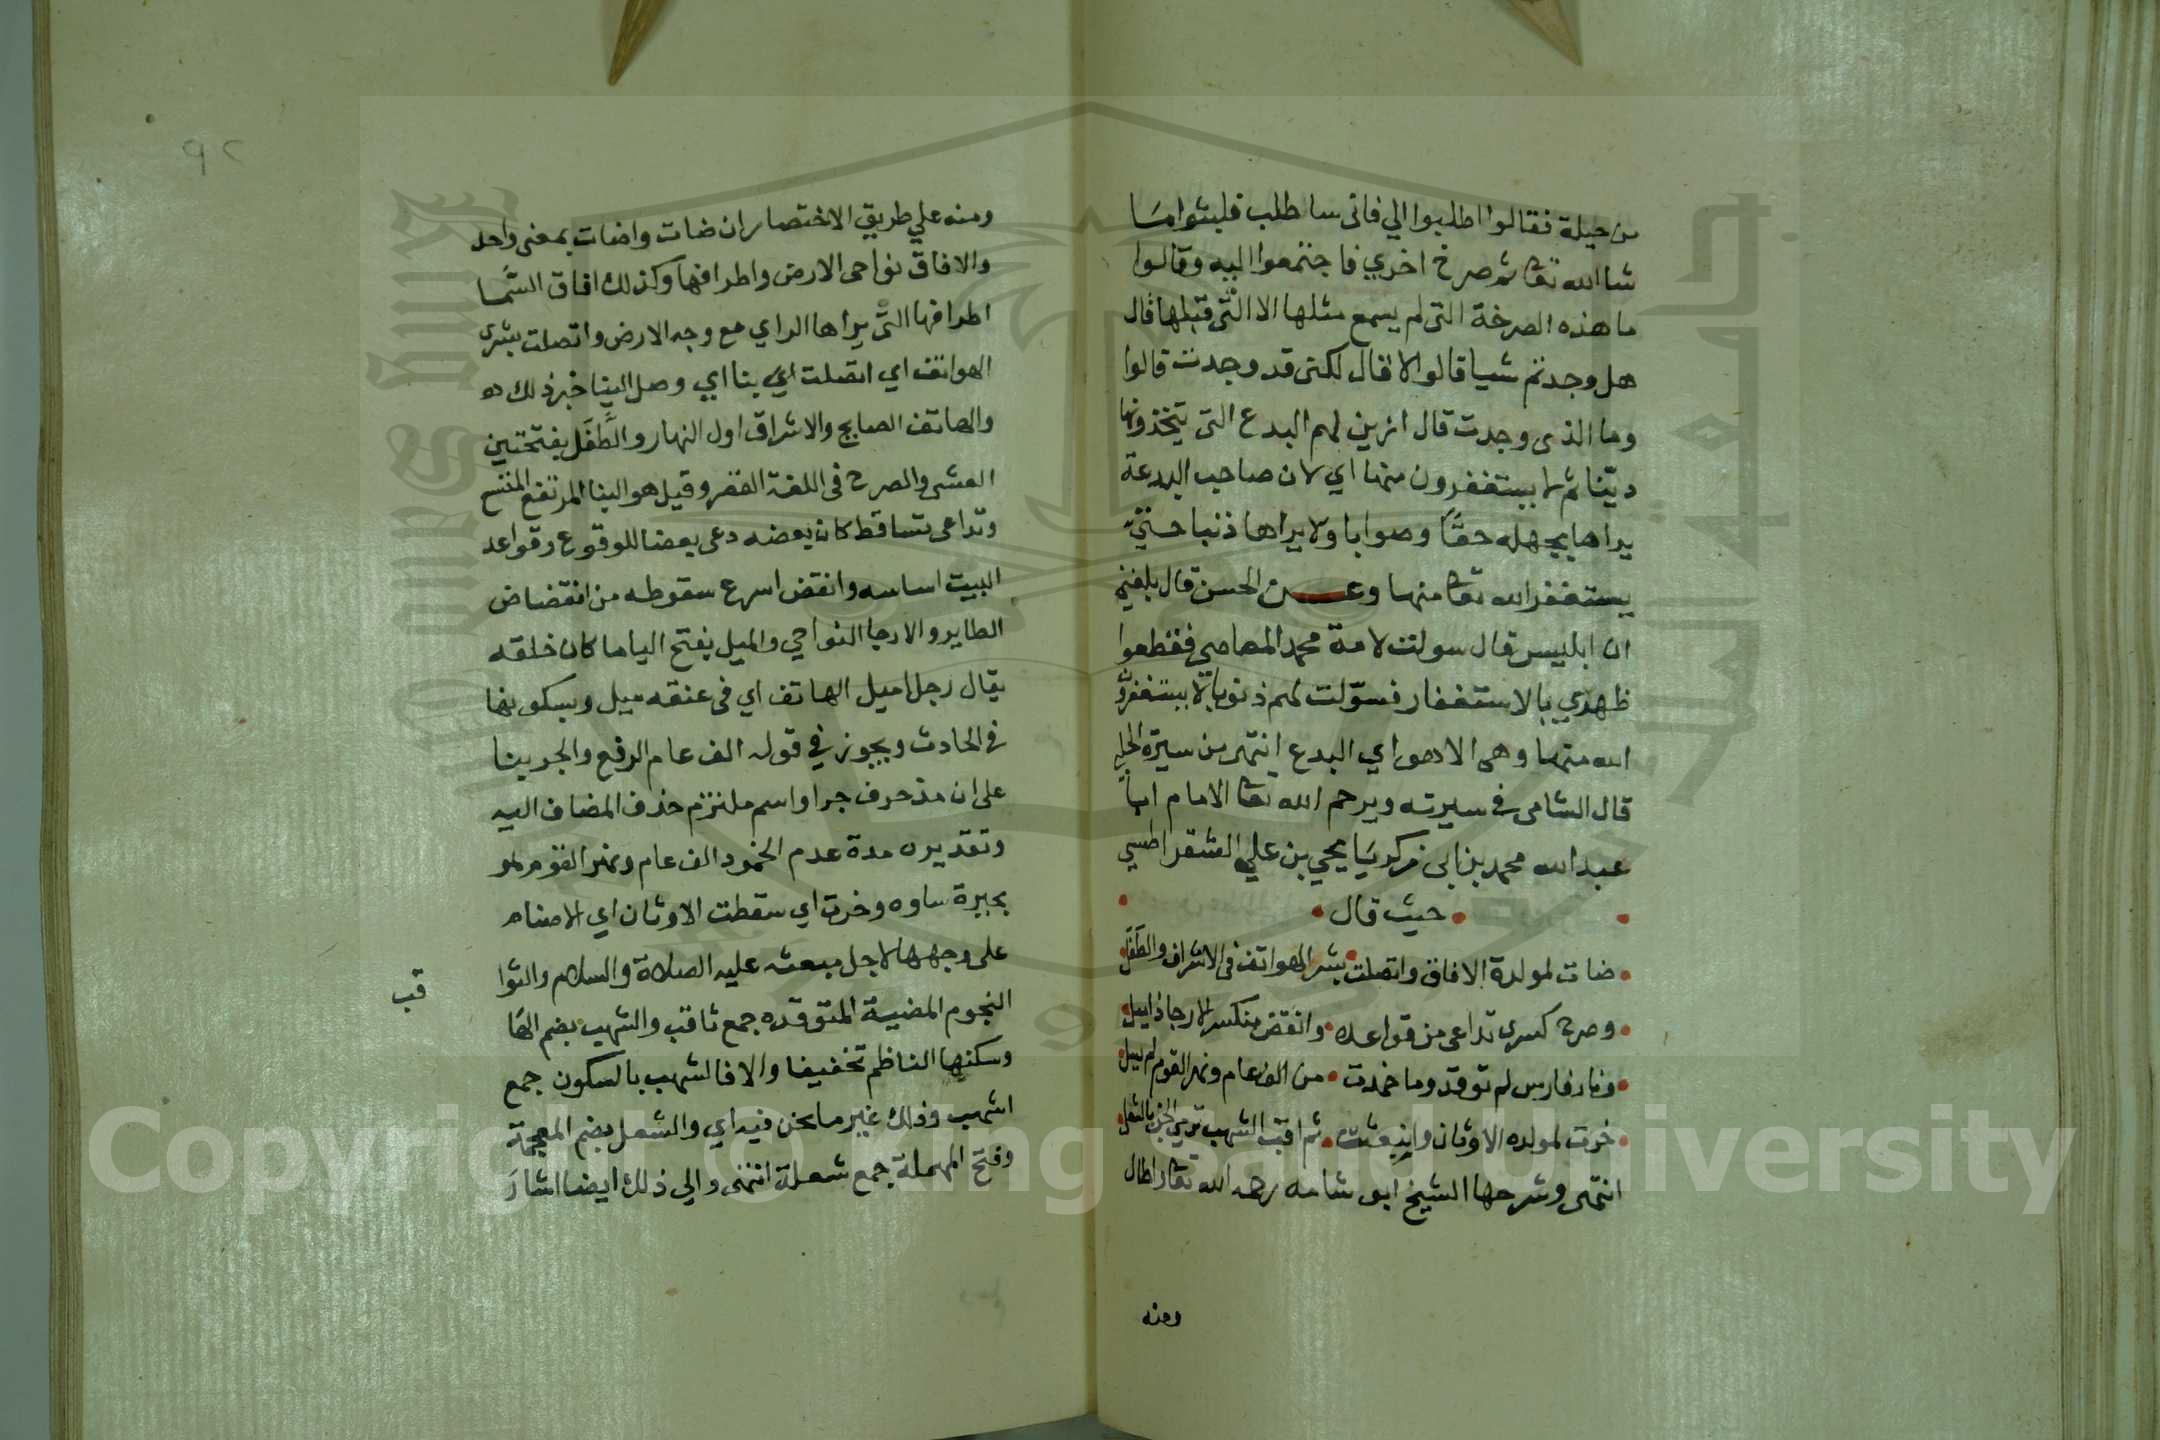 من حيلة فقالوا اطلبوا الي فاني ساطلب فلبثوا مسا
شا الله تعا ثم صرخ اخري فاجتمعوا اليه وقالوا
ما هذه الصرخة التي لم يسمع مثلها الا التي قبلها قال
هل وجدتم شيا قالوا لا قال لكني قد وجدت قالوا
وما الذي وجدت قال ازين لهم البدع التي يتخذونها
دينا ثم لا يستغفرون منها اي لان صاحب البدعة
يراها بجهله حقا وصوابا ولا يراها ذنبا حتي
يستغفر الله تعا منها وعن الحسن قال بلغني
ان ابليس قال سولت لامة محمد المعاصي فقطعوا
ظهري بالاستغفار فسوّلت لهم ذنوبا لا يستغفرون
الله منها وهي الاهوا اي البدع انتهي من سيرة الحلبي
قال الشامي في سيرته ويرحم الله تعا الامام ابا
عبد الله محمد بن ابي زكريا يحيي بن علي الشقراطسي
حيث قال
ضات لمولده الافاق واتصلت بشر الهواتف في الاشراق والطفل
وصرح كسري تداعي من قواعده وانقض منكسر الارجا ذا ميل
ونار فارس لم توقد وما خمدت من الف عام ونهر القوم لم يسل
خرت لمولده الاوثان وانبعثت ثواقب الشهب ترمي الجن بالشعل
انتهي وشرحها الشيخ ابو شامه رحمه الله تعا واطال
ومنه
٩٢
ومنه علي طريق الاختصار ان ضات واضات بمعني واحد
والافاق نواحي الارض واطرافها وكذلك افاق السما
اطرافها التي يراها الراي مع وجه الارض واتصلت بشري
الهواتف اي اتصلت اي بنا اي وصل الينا خبر ذلك
والهاتف الصايح والاشراق اول النهار والطَّفَل بفتحتين
العشي والصرح في اللغة القصر وقيل هو البنا المرتفع المتسع
وتداعي تساقط كان بعضه دعي بعضا للوقوع وقواعد
البيت اساسه وانقض اسرع سقوطه من انقضاض
الطاير والارجا النواحي والميل بفتح اليا ما كان خلقه
يقال رجل اميل الهاتف اي في عنقه ميل وبسكونها
في الحادث ويجوز في قوله الف عام الرفع والجر بنا
علي ان مذ حرف جر او اسم ملتزم حذف المضاف اليه
وتقديره مدة عدم الخمود الف عام ونهر القوم هو
بحيرة ساوه وخرت اي سقطت الاوثان اي الاصنام
علي وجهها لاجل مبعثه عليه الصلاة والسلام والثوا
قب
النجوم المضية المتوقده جمع ثاقب والشهب بضم الها
وسكنها الناظم تخفيفا والا فالشهب بالسكون جمع
اشهب وذلك غير ما نحن فيه اي والشعل بضم المعجمة
وفتح المهملة جمع شعلة انتهي والي ذلك ايضا اشار
Copyright © King Saud University